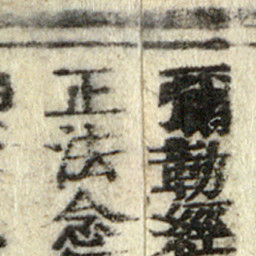 彌勒經
正法念